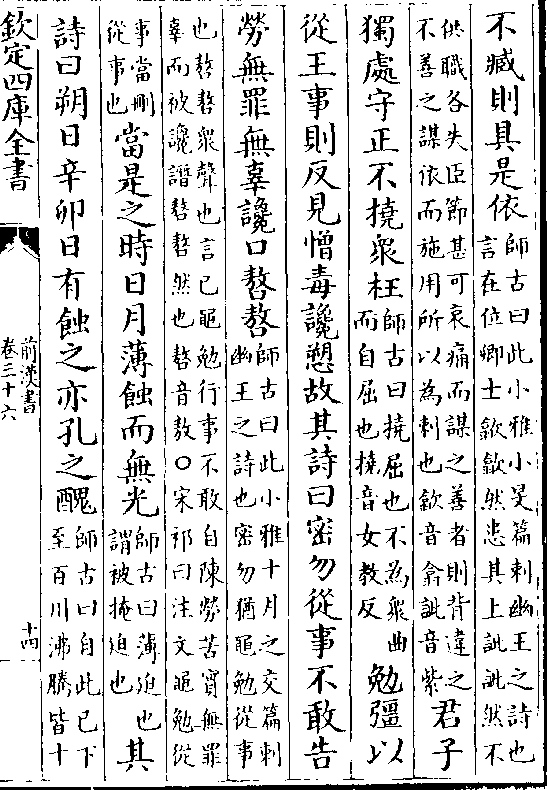 不臧則具是依師古曰此小雅小旻篇刺幽王之詩也言在位卿士歙歙然患其上訿訿然不
供職各失臣節甚可哀痛而謀之善者則背違之不善之謀依而施用所以為刺也歙音翕訿音紫君子
獨處守正不撓衆枉師古曰撓屈也不為衆曲而自屈也撓音女教反勉彊以
從王事則反見憎毒讒愬故其詩曰密勿從事不敢告
勞無罪無辜讒口嗸嗸師古曰此小雅十月之交篇刺幽王之詩也密勿猶黽勉從事
也嗸嗸衆聲也言已黽勉行事不敢自陳勞苦實無罪辜而被讒譖嗸嗸然也嗸音敖○宋祁曰注文黽勉從
事當刪從事也當是之時日月薄蝕而無光師古曰薄迫也謂被掩迫也其
詩曰朔日辛卯日有蝕之亦孔之醜師古曰自此已下至百川沸騰皆十
欽定四庫全書
前漢書
卷三十六
十四